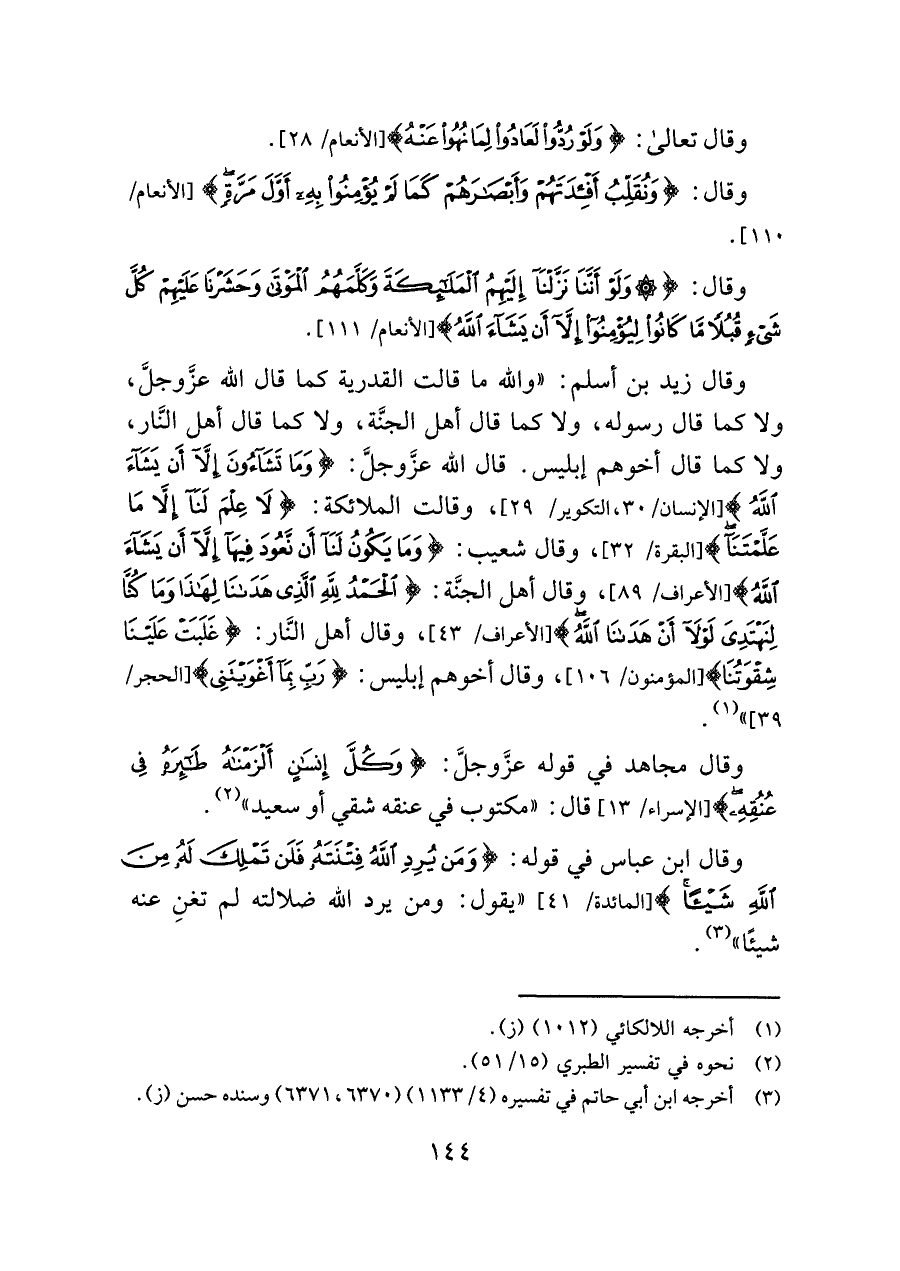 وقال تعالىٰ: ﴿ وَلَوْ رُدُّوا۟ لَعَادُوا۟ لِمَا نُهُوا۟ عَنْهُ﴾[الأنعام/ ٢٨].
وقال: ﴿ وَنُقَلِّبُ أَفْـِٔدَتَهُمْ وَأَبْصَـٰرَهُمْ كَمَا لَمْ يُؤْمِنُوا۟ بِهِۦٓ أَوَّلَ مَرَّةٍۢ ﴾ [الأنعام/
١١٠].
وقال: ﴿ ۞ وَلَوْ أَنَّنَا نَزَّلْنَآ إِلَيْهِمُ ٱلْمَلَـٰٓئِكَةَ وَكَلَّمَهُمُ ٱلْمَوْتَىٰ وَحَشَرْنَا عَلَيْهِمْ كُلَّ
شَىْءٍۢ قُبُلًۭا مَّا كَانُوا۟ لِيُؤْمِنُوٓا۟ إِلَّآ أَن يَشَآءَ ٱللَّهُ﴾[الأنعام/ ١١١].
وقال زيد بن أسلم: «والله ما قالت القدرية كما قال الله عزَّوجلَّ،
ولا كما قال رسوله، ولا كما قال أهل الجنَّة، ولا كما قال أهل النَّار،
ولا كما قال أخوهم إبليس. قال الله عزَّوجلَّ: ﴿ وَمَا تَشَآءُونَ إِلَّآ أَن يَشَآءَ
ٱللَّهُ ﴾[الإنسان/ ٣٠،التكوير/ ٢٩]، وقالت الملائكة: ﴿ لَا عِلْمَ لَنَآ إِلَّا مَا
عَلَّمْتَنَآ﴾[البقرة/ ٣٢]، وقال شعيب: ﴿ وَمَا يَكُونُ لَنَآ أَن نَّعُودَ فِيهَآ إِلَّآ أَن يَشَآءَ
ٱللَّهُ﴾[الأعراف/ ٨٩]، وقال أهل الجنَّة: ﴿ ٱلْحَمْدُ لِلَّهِ ٱلَّذِى هَدَىٰنَا لِهَـٰذَا وَمَا كُنَّا
لِنَهْتَدِىَ لَوْلَآ أَنْ هَدَىٰنَا ٱللَّهُ﴾[الأعراف/ ٤٣]، وقال أهل النَّار: ﴿ غَلَبَتْ عَلَيْنَا
شِقْوَتُنَا﴾[المؤمنون/ ١٠٦]، وقال أخوهم إبليس: ﴿ رَبِّ بِمَآ أَغْوَيْتَنِى﴾[الحجر/
٣٩]»(١).
وقال مجاهد في قوله عزَّوجلَّ: ﴿ وَكُلَّ إِنسَـٰنٍ أَلْزَمْنَـٰهُ طَـٰٓئِرَهُۥ فِى
عُنُقِهِۦ﴾[الإسراء/ ١٣] قال: «مكتوب في عنقه شقي أو سعيد»(٢).
وقال ابن عباس في قوله: ﴿ وَمَن يُرِدِ ٱللَّهُ فِتْنَتَهُۥ فَلَن تَمْلِكَ لَهُۥ مِنَ
ٱللَّهِ شَيْـًٔا ﴾[المائدة/ ٤١] «يقول: ومن يرد الله ضلالته لم تغنِ عنه
شيئًا»(٣).
(١) أخرجه اللالكائي (١٠١٢) (ز).
(٢) نحوه في تفسير الطبري (١٥/ ٥١).
(٣) أخرجه ابن أبي حاتم في تفسيره (٤/ ١١٣٣) (٦٣٧٠، ٦٣٧١) وسنده حسن (ز).
١٤٤